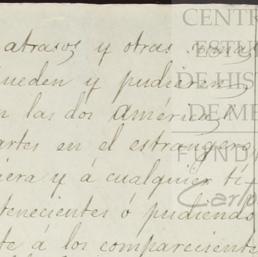 atrasos y otras
ueden y pudieren
n las dos América
artes en el estrangero
iera y á cualquier tí-
tenecientes ó pudiendo
te á los comparecientes
CENTR
ESTU
DE HIST
DE MÉ
FUND
Carlo